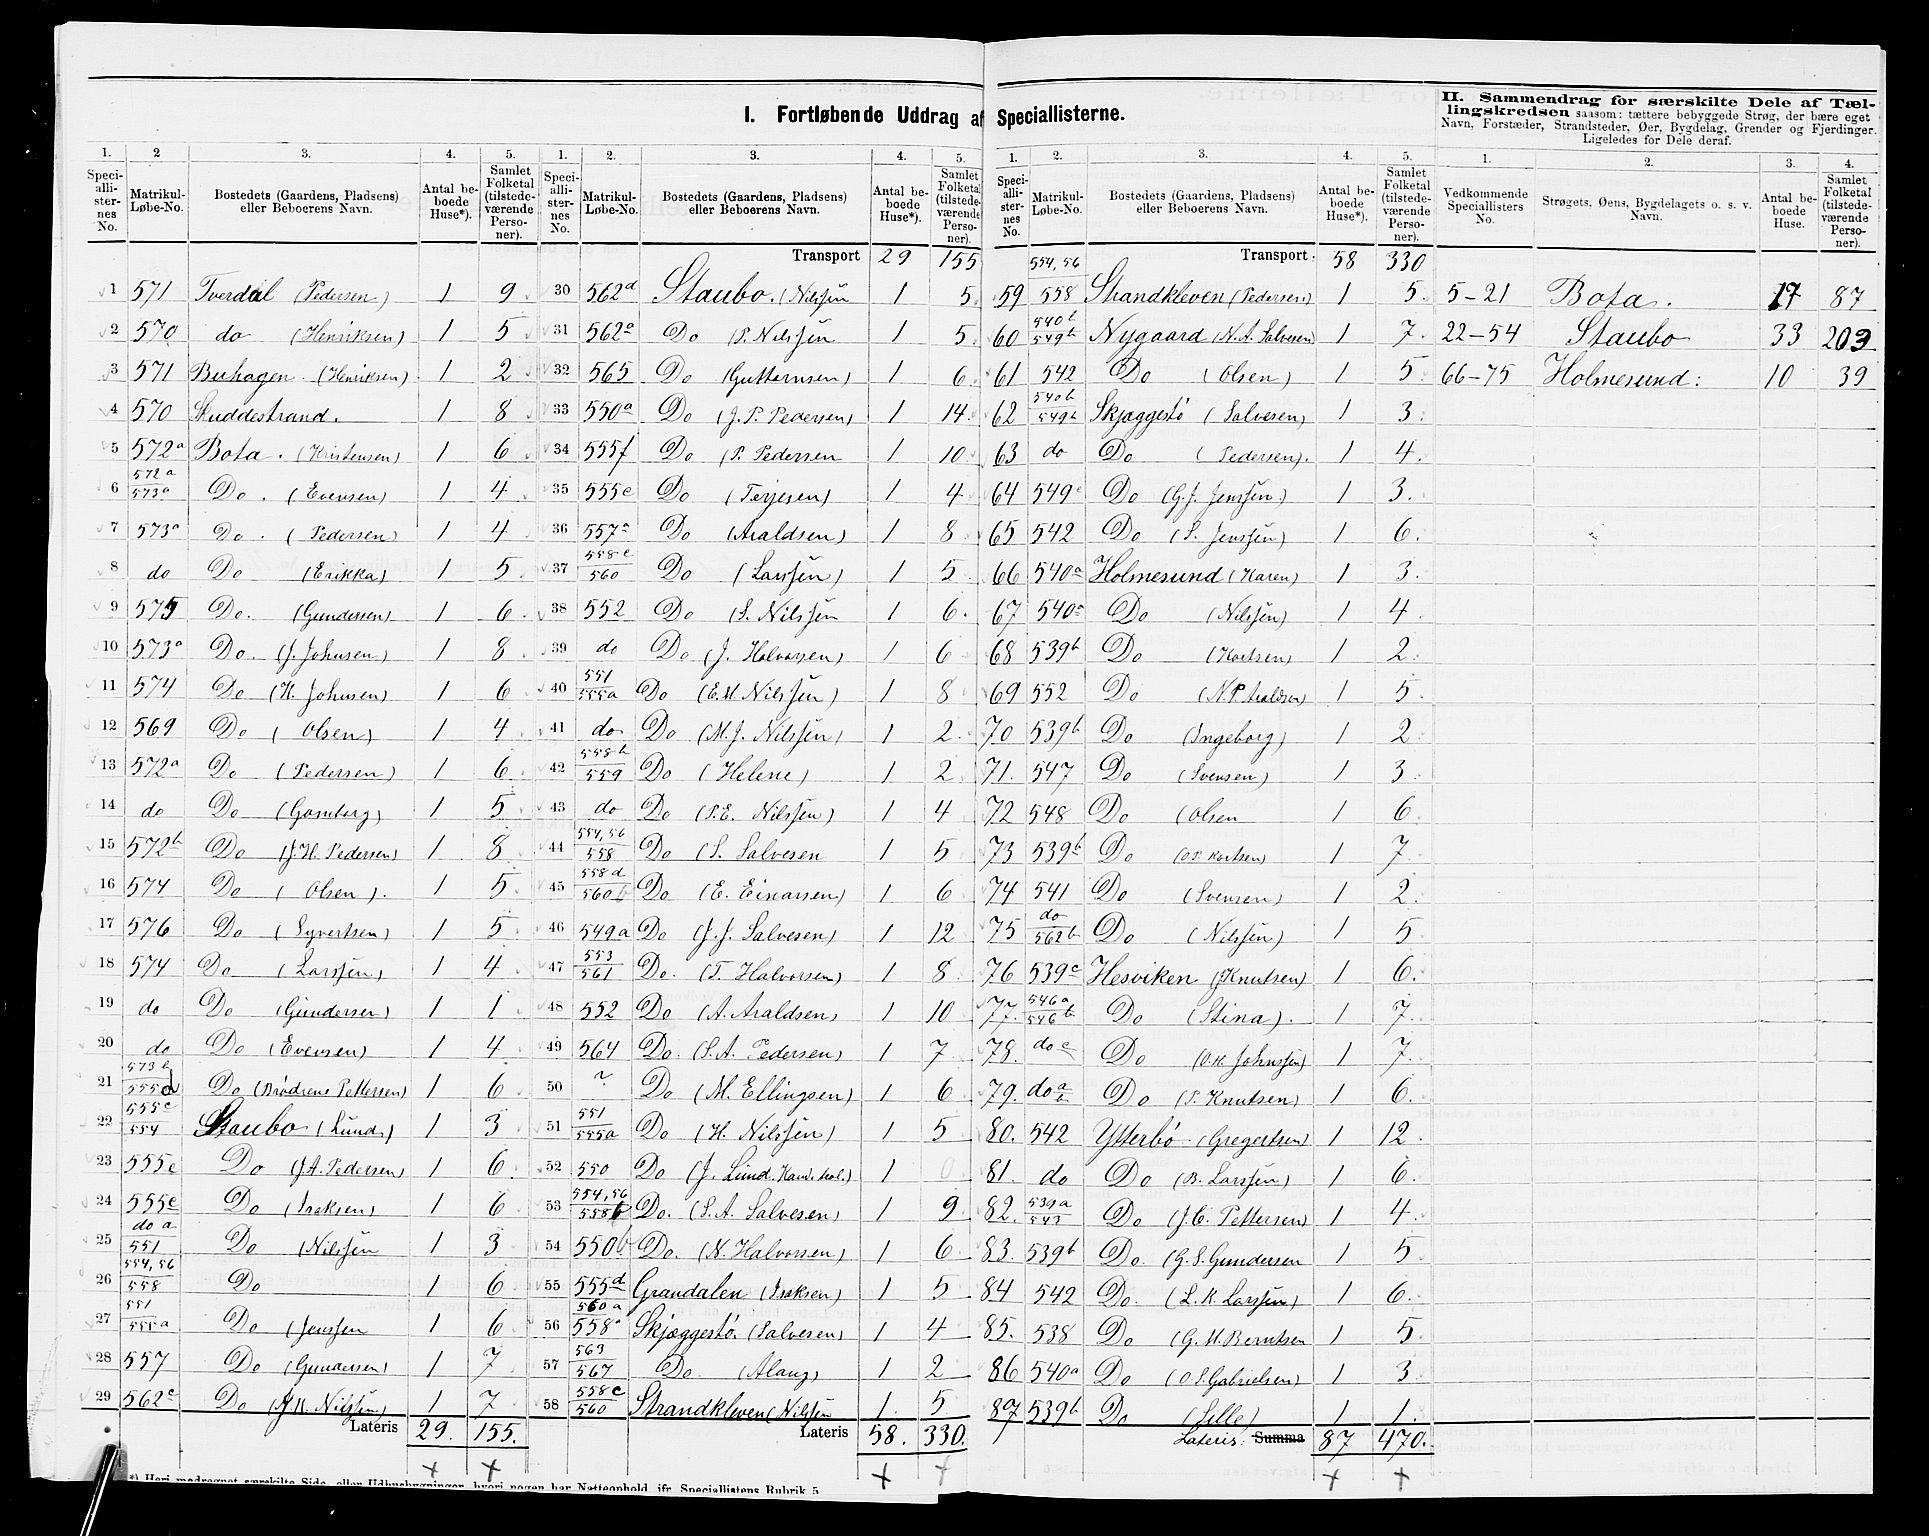 I. Fortløbende Uddrag af Speciallisterne.
II. Sammendrag for særskilte Dele af Tæl-
lingskredsen saasom: tættere bebyggede Strøg, der bære eget
Navn, Forstæder, Strandsteder, Øer, Bygdelag, Grender og Fjerdinger.
Ligeledes for Dele deraf.
1. 2 3. 4. 5.
Speci-alli-ster-nes No. Matrikul-Løbe-No. Bostedets (Gaardens, Pladsens) eller Beboerens Navn. Antal be-boede Huse*). Samlet Folketal (tilstede-værende Perso-ner).
1 571 Tverdal (Pedersen) 1 9
2 570 do (Henriksen) 1 5
3 571 Buhagen (Henriksen) 1 2
4 570 Skuddestrand. 1 8
5 572a Bota. (Kristensen) 1 6
6 572a 573a Do. (Evensen) 1 4
7 573a Do. (Pedersen) 1 4
8 do Do (Erikka) 1 5
9 575 Do. (Gundersen) 1 6
10 573a Do. (J. Johnsen) 1 8
11 574 Do (K. Johnsen) 1 6
12 569 Do (Olsen) 1 4
13 572a Do (Pedersen) 1 6
14 do Do (Gomborg) 1 5
15 572b Do (J.H. Pedersen) 1 8
16 574 Do (Olsen). 1 5
17 576 Do (Syvertsen) 1 5
18 574 Do (Larssen) 1 4
19 do Do (Gundersen) 1 1
20 do Do (Evensen) 1 4
21 573b 555d Do (Brødrene Pettersen) 1 6
22 555c 554 Staubo (Lund) 1 3
23 555c Do (J.A. Pedersen) 1 6
24 555c Do (Isaksen) 1 6
25 do a 551 Do (Nilssen 1 3
26 554,56 558 Do 1 6
27 551 555a Do (Jenssen 1 6
28 557 Do (Gundersen) 1 7
29 562c Do (J.K. Nilssen) 1 7
Lateris 29. 155.
*) Heri medregnet særskilte Side- eller Udhusbygninger, hvori nogen har Natteophold, jfr. Speciallistens Rubrik 5.
1. 2. 3. 4. 5.
Speci-alli-ster-nes No. Matrikul-Løbe-No. Bostedets (Gaardens, Pladsens) eller Beboerens Navn. Antal be-boede Huse*). Samlet Folketal (tilstede-værende Perso-ner).
Transport 29 155
30 562d Staubo. (Nilssen 1 5
31 562e Do (P. Nilssen 1 5
32 565 Do (Guttormsen) 1 6
33 550a Do (J.P. Pedersen) 1 14
34 555f Do (P. Pedersen 1 10
35 555c Do (Terjesen) 1 4
36 557a Do (Araldsen) 1 8
37 558c 560 Do (Larssen) 1 5
38 552 Do (S. Nilssen 1 6
39 do Do (J. Halvorsen) 1 6
40 551 555a Do (E.M. Nilssen) 1 8
41 do Do (M.J. Nilssen) 1 2
42 558b 559 Do (Helene) 1 2
43 do Do (P.E. Nilssen) 1 4
44 554,56 558 Do (S. Salvesen 1 5
45 558d 560b Do (E. Einarsen) 1 6
46 549a Do (J.J. Salvesen) 1 12
47 553 561 Do. (T. Halvorsen) 1 8
48 552 Do (A. Araldsen) 1 10
49 564 Do. (S.A. Pedersen) 1 7
50 ? Do (M. Ellingsen) 1 6
51 551 555a Do (H. Nilssen) 1 5
52 550 Do (J. Lund. Kand. teol.) 1 0
53 554,56 558b Do. (S.A. Salvesen) 1 9
54 550b Do. (N. Halvorsen) 1 6
55 555d Grandalen (Isaksen) 1 5
56 560a 558a Skjæggestø. (Salvesen) 1 4
57 563 567 Do (Alang) 1 2
58 558c 560 Strandkleven (Nilssen 1 5
Lateris 58. 330.
1. 2. 3. 4. 5.
Speci-alli-ster-nes No. Matrikul-Løbe-No. Bostedets (Gaardens, Pladsens) eller Beboerens Navn. Antal be-boede Huse*). Samlet Folketal (tilstede-værende Perso-ner).
Transport 58 330
59 554,56 558 Strandkleven (Pedersen) 1 5
60 540b 549b Nygaard (N.A. Salvesen) 1 7
61 542 Do (Olsen) 1 5
62 540b 549b Skjæggestø (Salvesen) 1 3
63 do Do (Pedersen). 1 4
64 549c Do (G.J. Jenssen) 1 3
65 542 Do (S. Jenssen) 1 6
66 540a Holmesund (Karen) 1 3
67 540a Do (Nilssen) 1 4
68 539b Do (Kortsen) 1 2
69 552 Do (N.P. Araldsen) 1 5
70 539b Do (Ingeborg) 1 2
71. 547 Do (Svensen) 1 3
72 548 Do (Olsen 1 6
73 539b Do (O.P. Kortsen) 1 7
74 541 Do (Svensen) 1 2
75 do 562b Do (Nilssen) 1 5
76 539c Hesviken (Knutsen) 1 6
77. 546a 546b Do (Stina). 1 7
78. do c Do (O.K. Johnssen) 1 7
79. do a b Do (P. Knutsen) 1 6
80. 542 Ytterbø (Gregertsen) 1 12
81. do Do (B. Larssen) 1 6
82. 539a 543 Do (J.C. Pettersen) 1 4
83. 539b Do. (G.S. Gundersen 1 5
84 542 Do. (L.K. Larssen) 1 6
85. 538 Do (G.M. Berntsen 1 5
86 540a Do (O.S. Gabrielsen) 1 3
87 539b Do (Lille) 1 1
Lateris. Summa 87 470.
1. 2. 3. 4.
Vedkommende Speciallisters No. Strøgets, Øens, Bygdelagets o. s. v. Navn. Antal be-boede Huse. Samlet Folketal (tilstede-værende Perso-ner).
5-21 Bota. 17 87
22-54 Staubo 33 203
66-75 Holmesund: 10 39